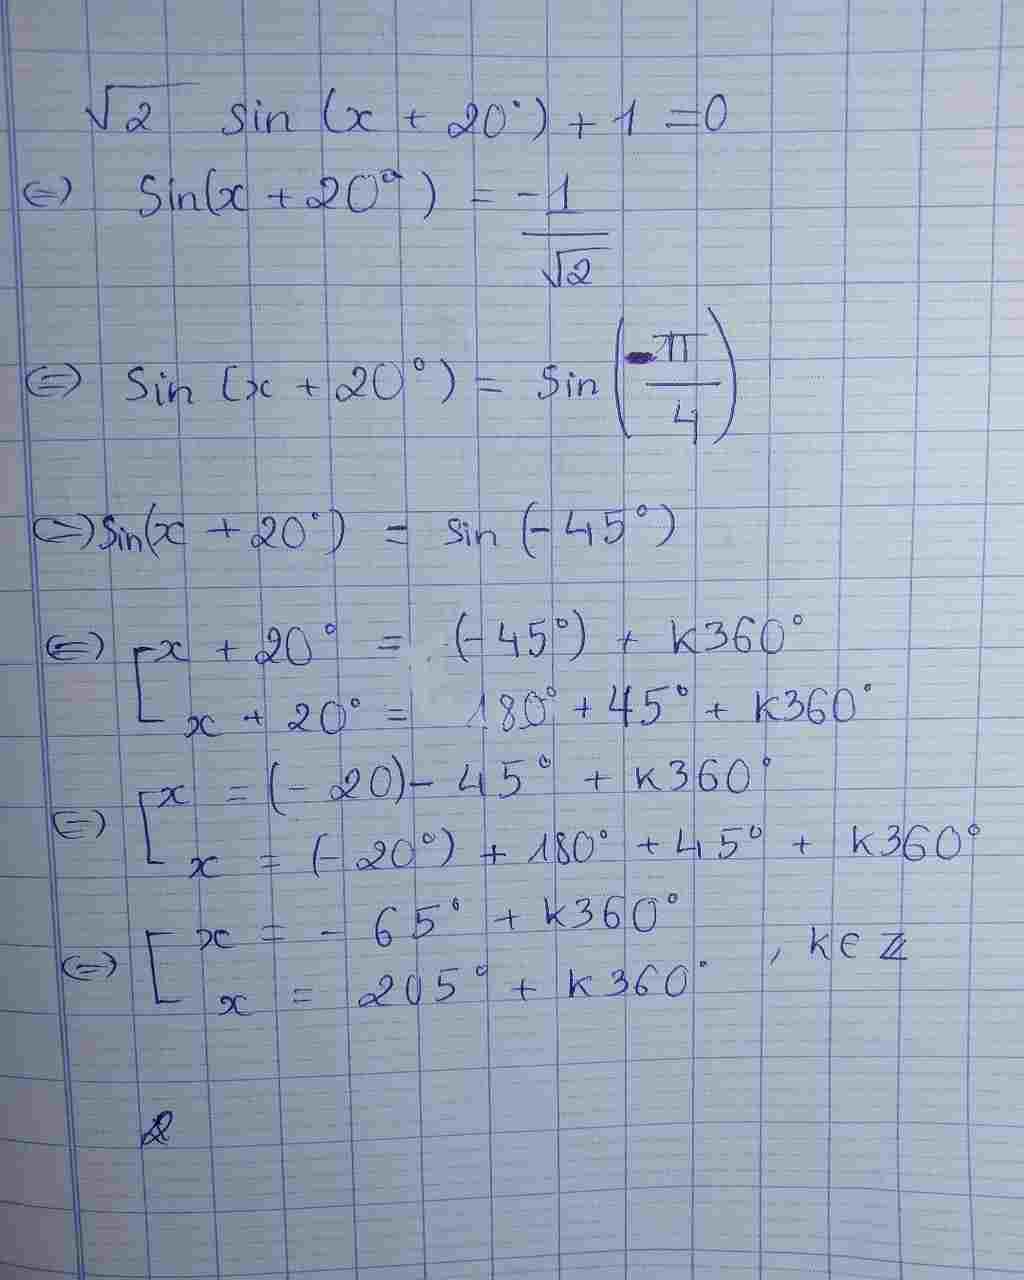 √2 sin (x + 20°) + 1 = 0
(=) Sin(x + 20°) = -1/√2
(=) Sin (x + 20°) = Sin (-π/4)
(=) Sin(x + 20°) = sin (-45°)
(=) [ x + 20° = (-45°) + K360°
x + 20° = 180° + 45° + K360°
(=) [ x = (-20) - 45° + K360°
x = (-20°) + 180° + 45° + K360°
(=) [ x = - 65° + K360°
x = 205° + K360° , K ∈ ℤ
2